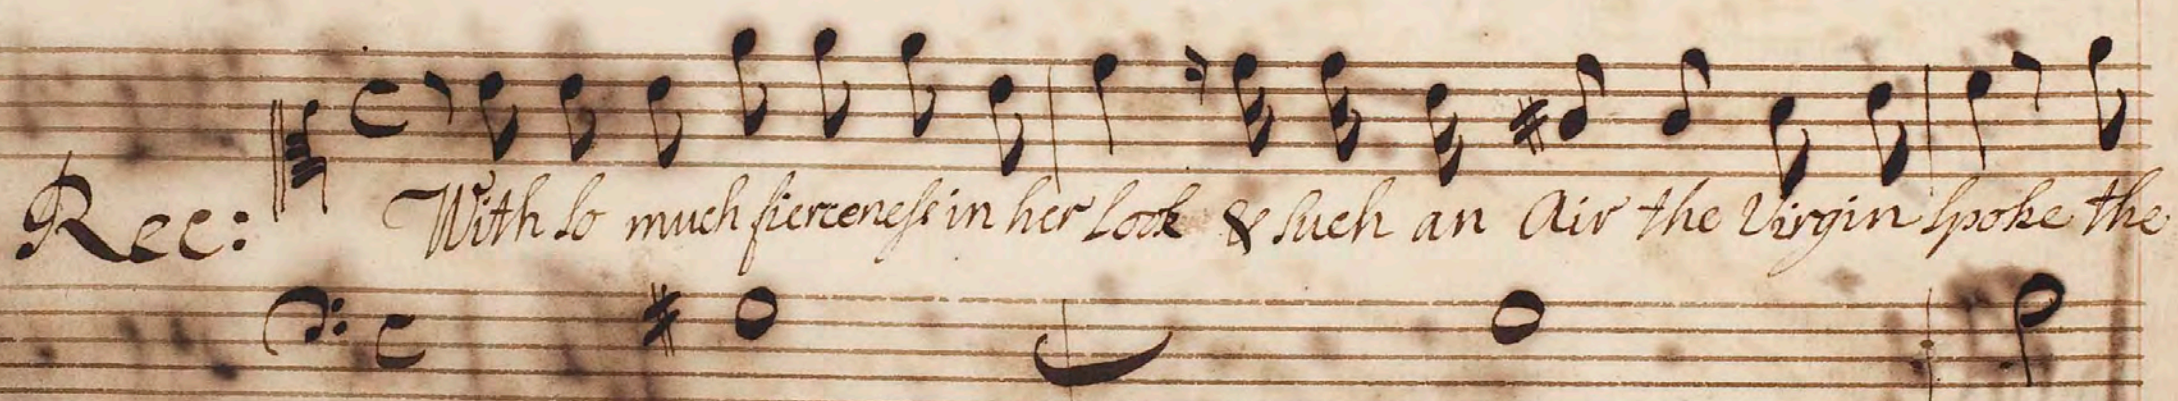 Rec: With so much fierceness in her Look & such an Air the Virgin spoke the